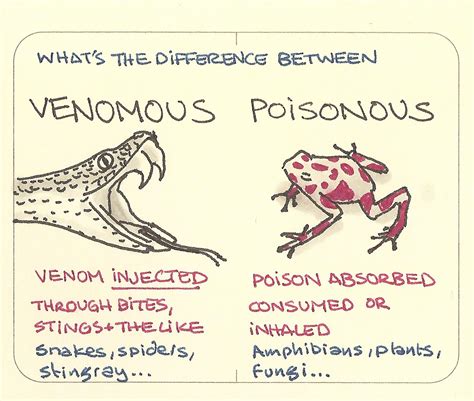 WHAT'S THE DIFFERENCE BETWEEN
VENOMOUS
POISONOUS
VENOM INJECTED
THROUGH BITES,
STINGS + THE LIKE
Snakes, spiders,
stingray...
POISON ABSORBED
CONSUMED OR
INHALED
Amphibians, plants,
Fungi...